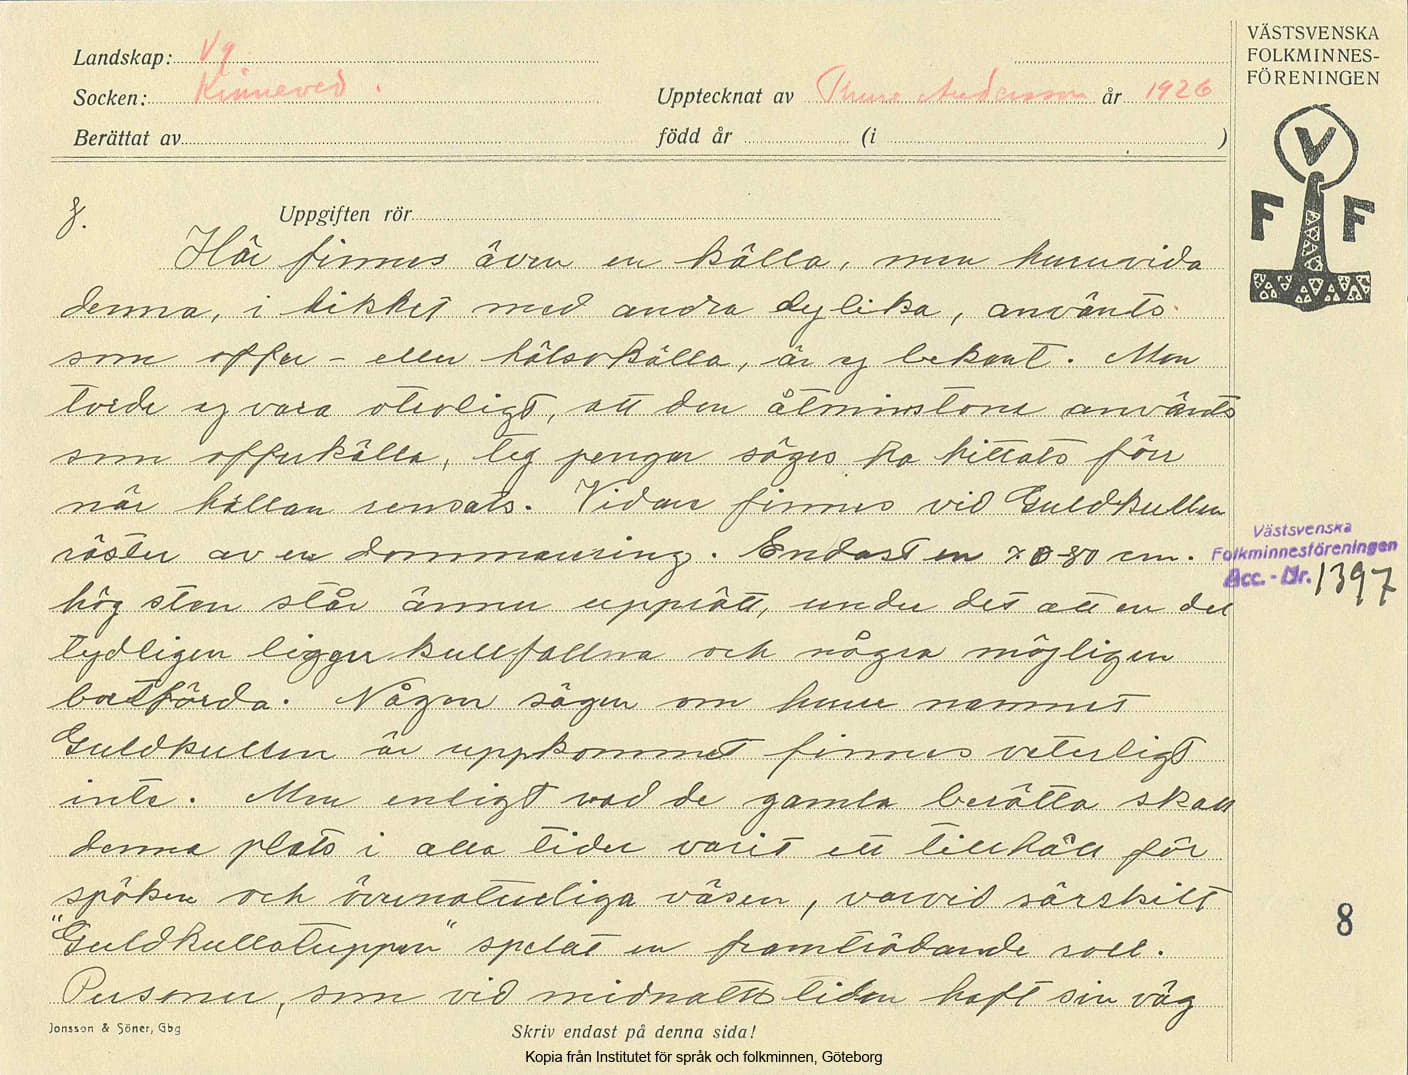 VÄSTSVENSKA
FOLKMINNES-
FÖRENINGEN
V
F F
Landskap: Vg
Socken: Kinneved.
Upptecknat av Thure Andersson år 1926
Berättat av
född år (i )
8.
Uppgiften rör
Här finnes även en källa, men huruvida
denna, i likhet med andra dylika, använts
som offer- eller hälsokälla, är ej bekant. Men
torde ej vara otroligt, att den åtminstone använts
som offerkälla, ty pengar säges ha hittats förr
när källan rensats. Vidare finnes vid Guldkullen
rester av en dommarring. Endast en 70-80 cm.
hög sten står ännu upprätt, under det att en del
tydligen ligger kullfallna och några möjligen
bortförda. Någon sägen om huru namnet
Guldkullen är uppkommet finnes veterligt
inte. Men enligt vad de gamla berätta skall
denna plats i alla tider varit ett tillhåll för
spöken och övernaturliga väsen, varvid särskilt
"Guldkullatuppen" spelat en framträdande roll.
Personer, som vid midnattstiden haft sin väg
Västsvenska
Folkminnesföreningen
Acc.-Nr. 1397
8
Jonsson & Söner, Gbg
Skriv endast på denna sida!
Kopia från Institutet för språk och folkminnen, Göteborg